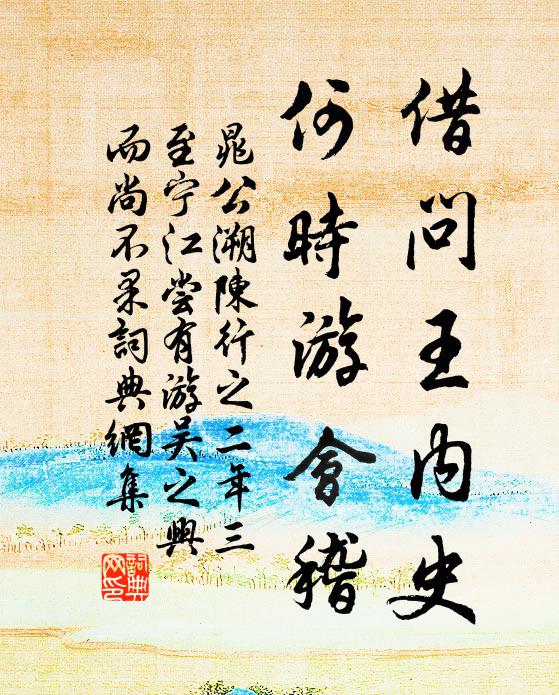 借問王內史
何時游會稽
晁公溯陳行之二年三
至宁江尝有游吴之興
而尚不果詞典網集
詞典
网印